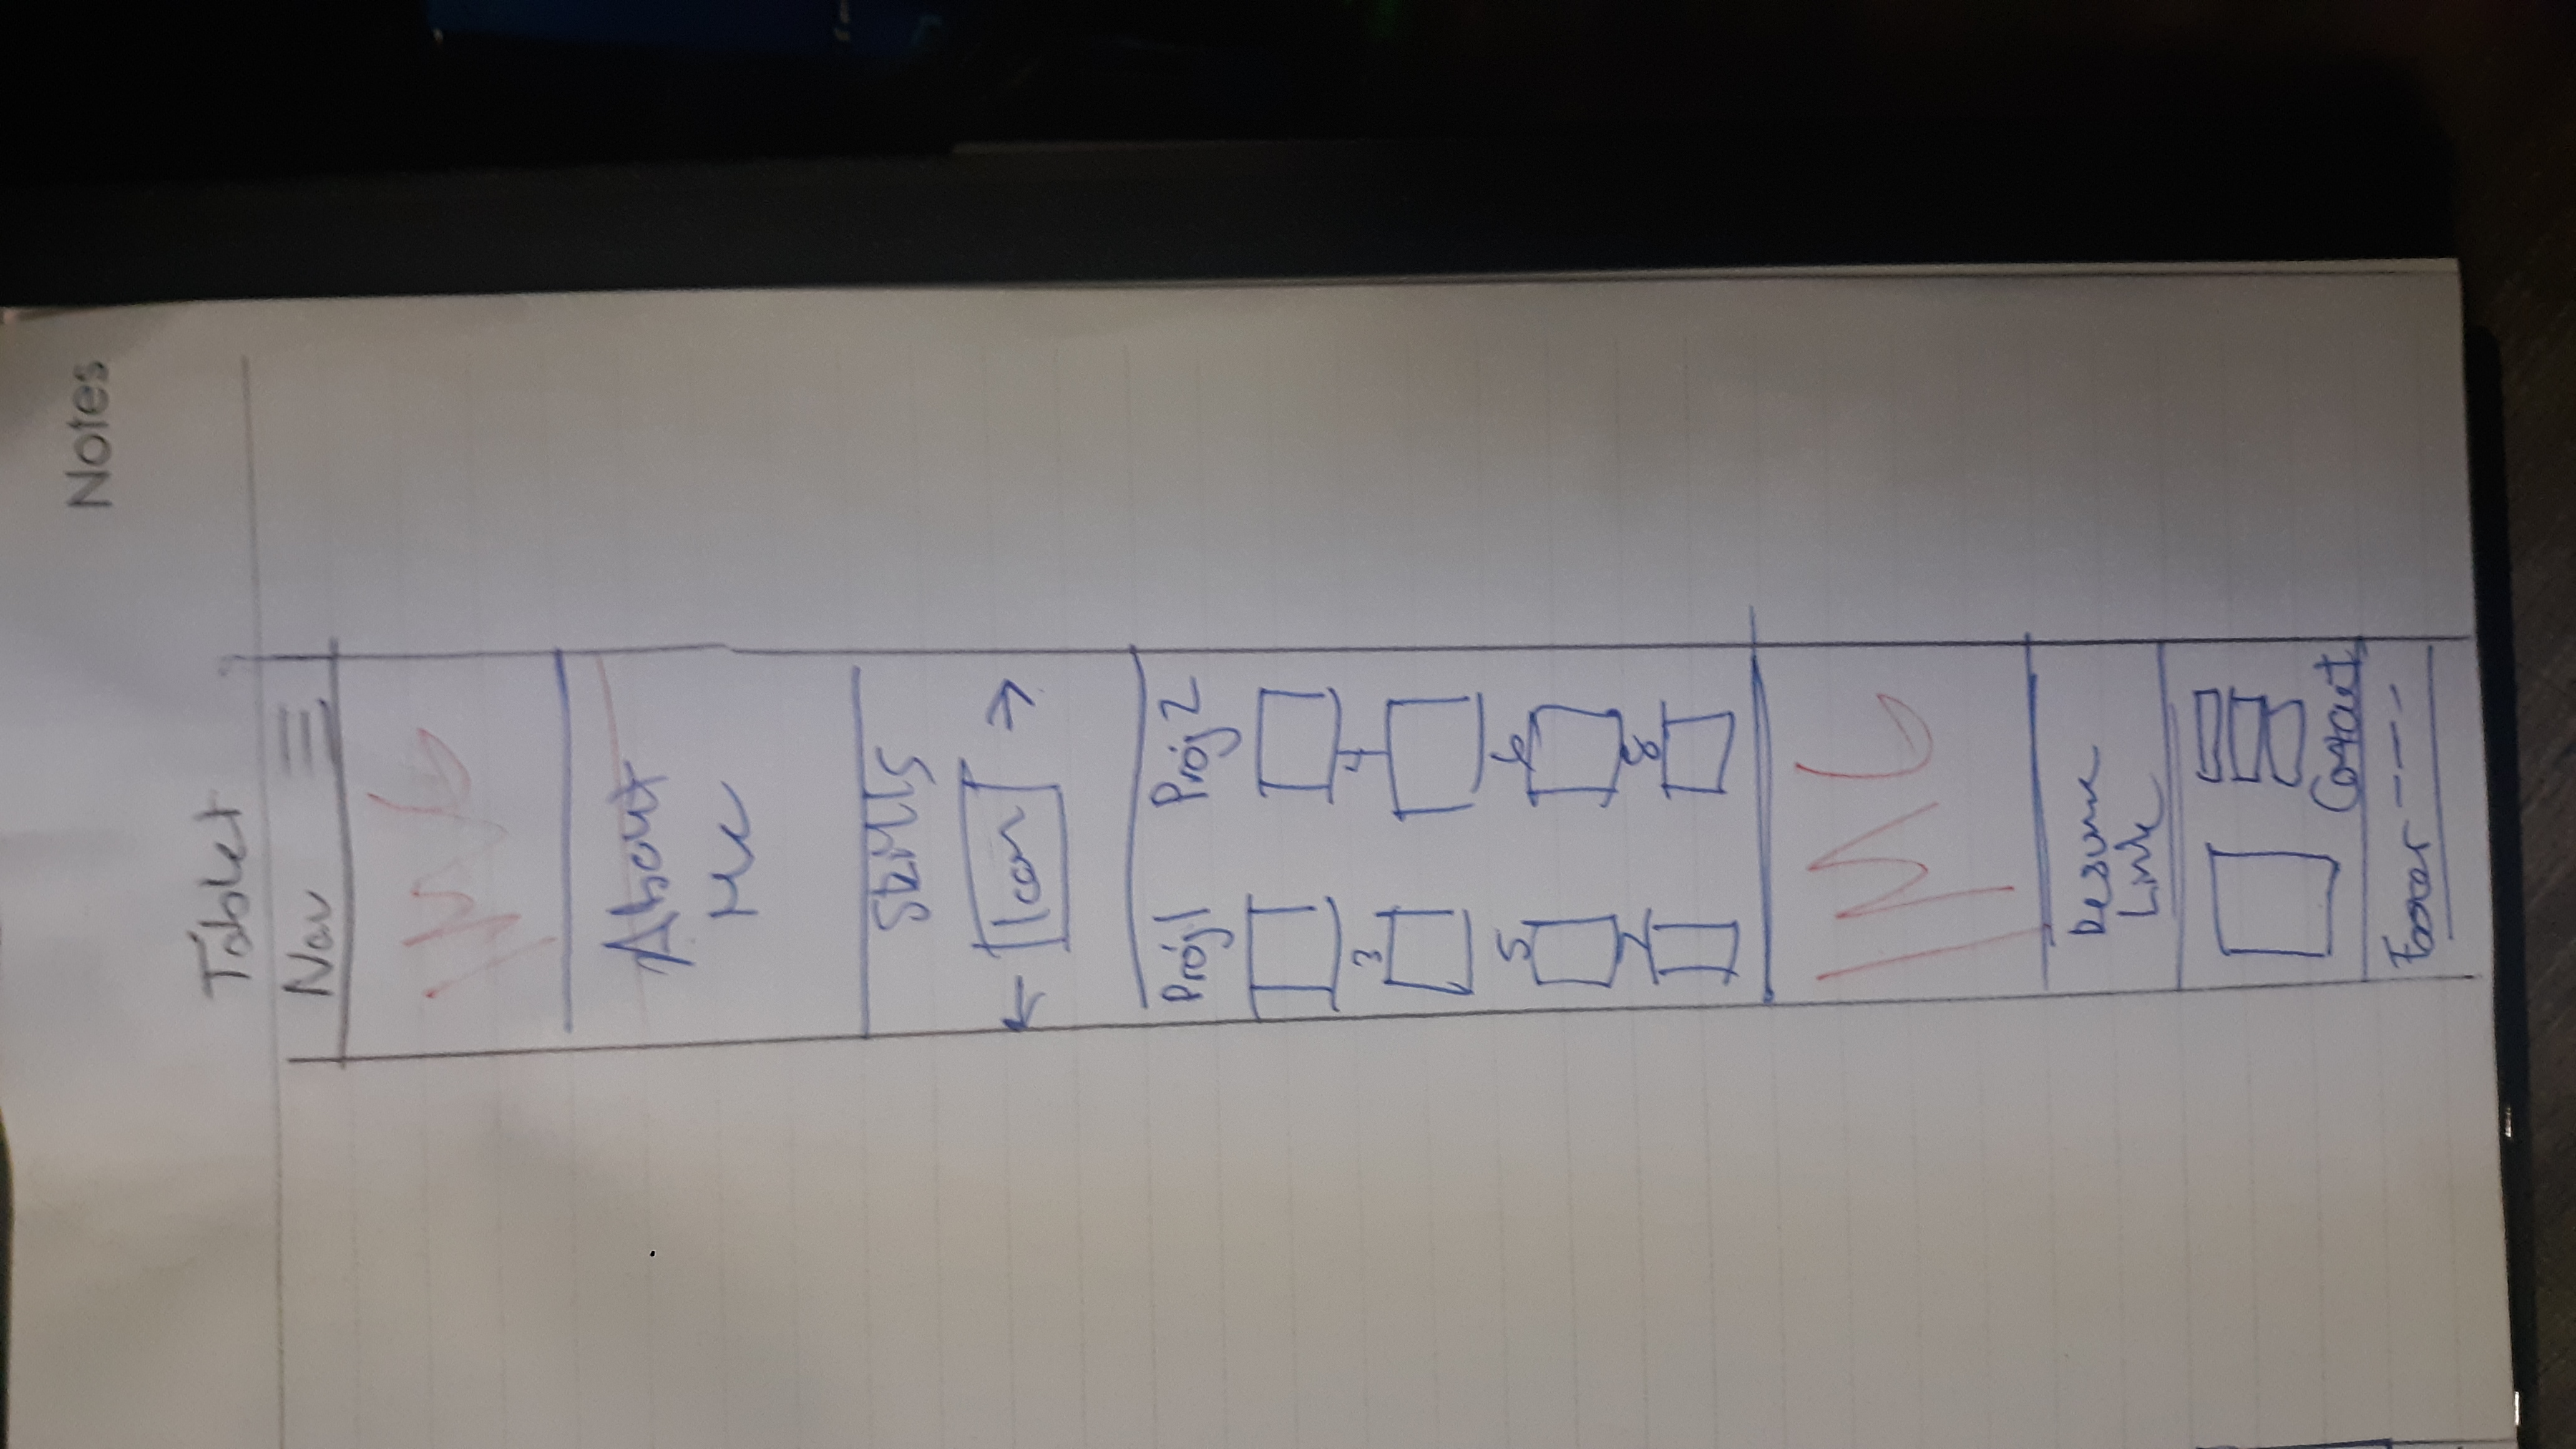 Notes
Tablet
Nav
IMG
About
Me
Skills
Icon
Proj1 Proj2
3 4
5 6
7 8
IMG
Resume
Link
Contact
Footer